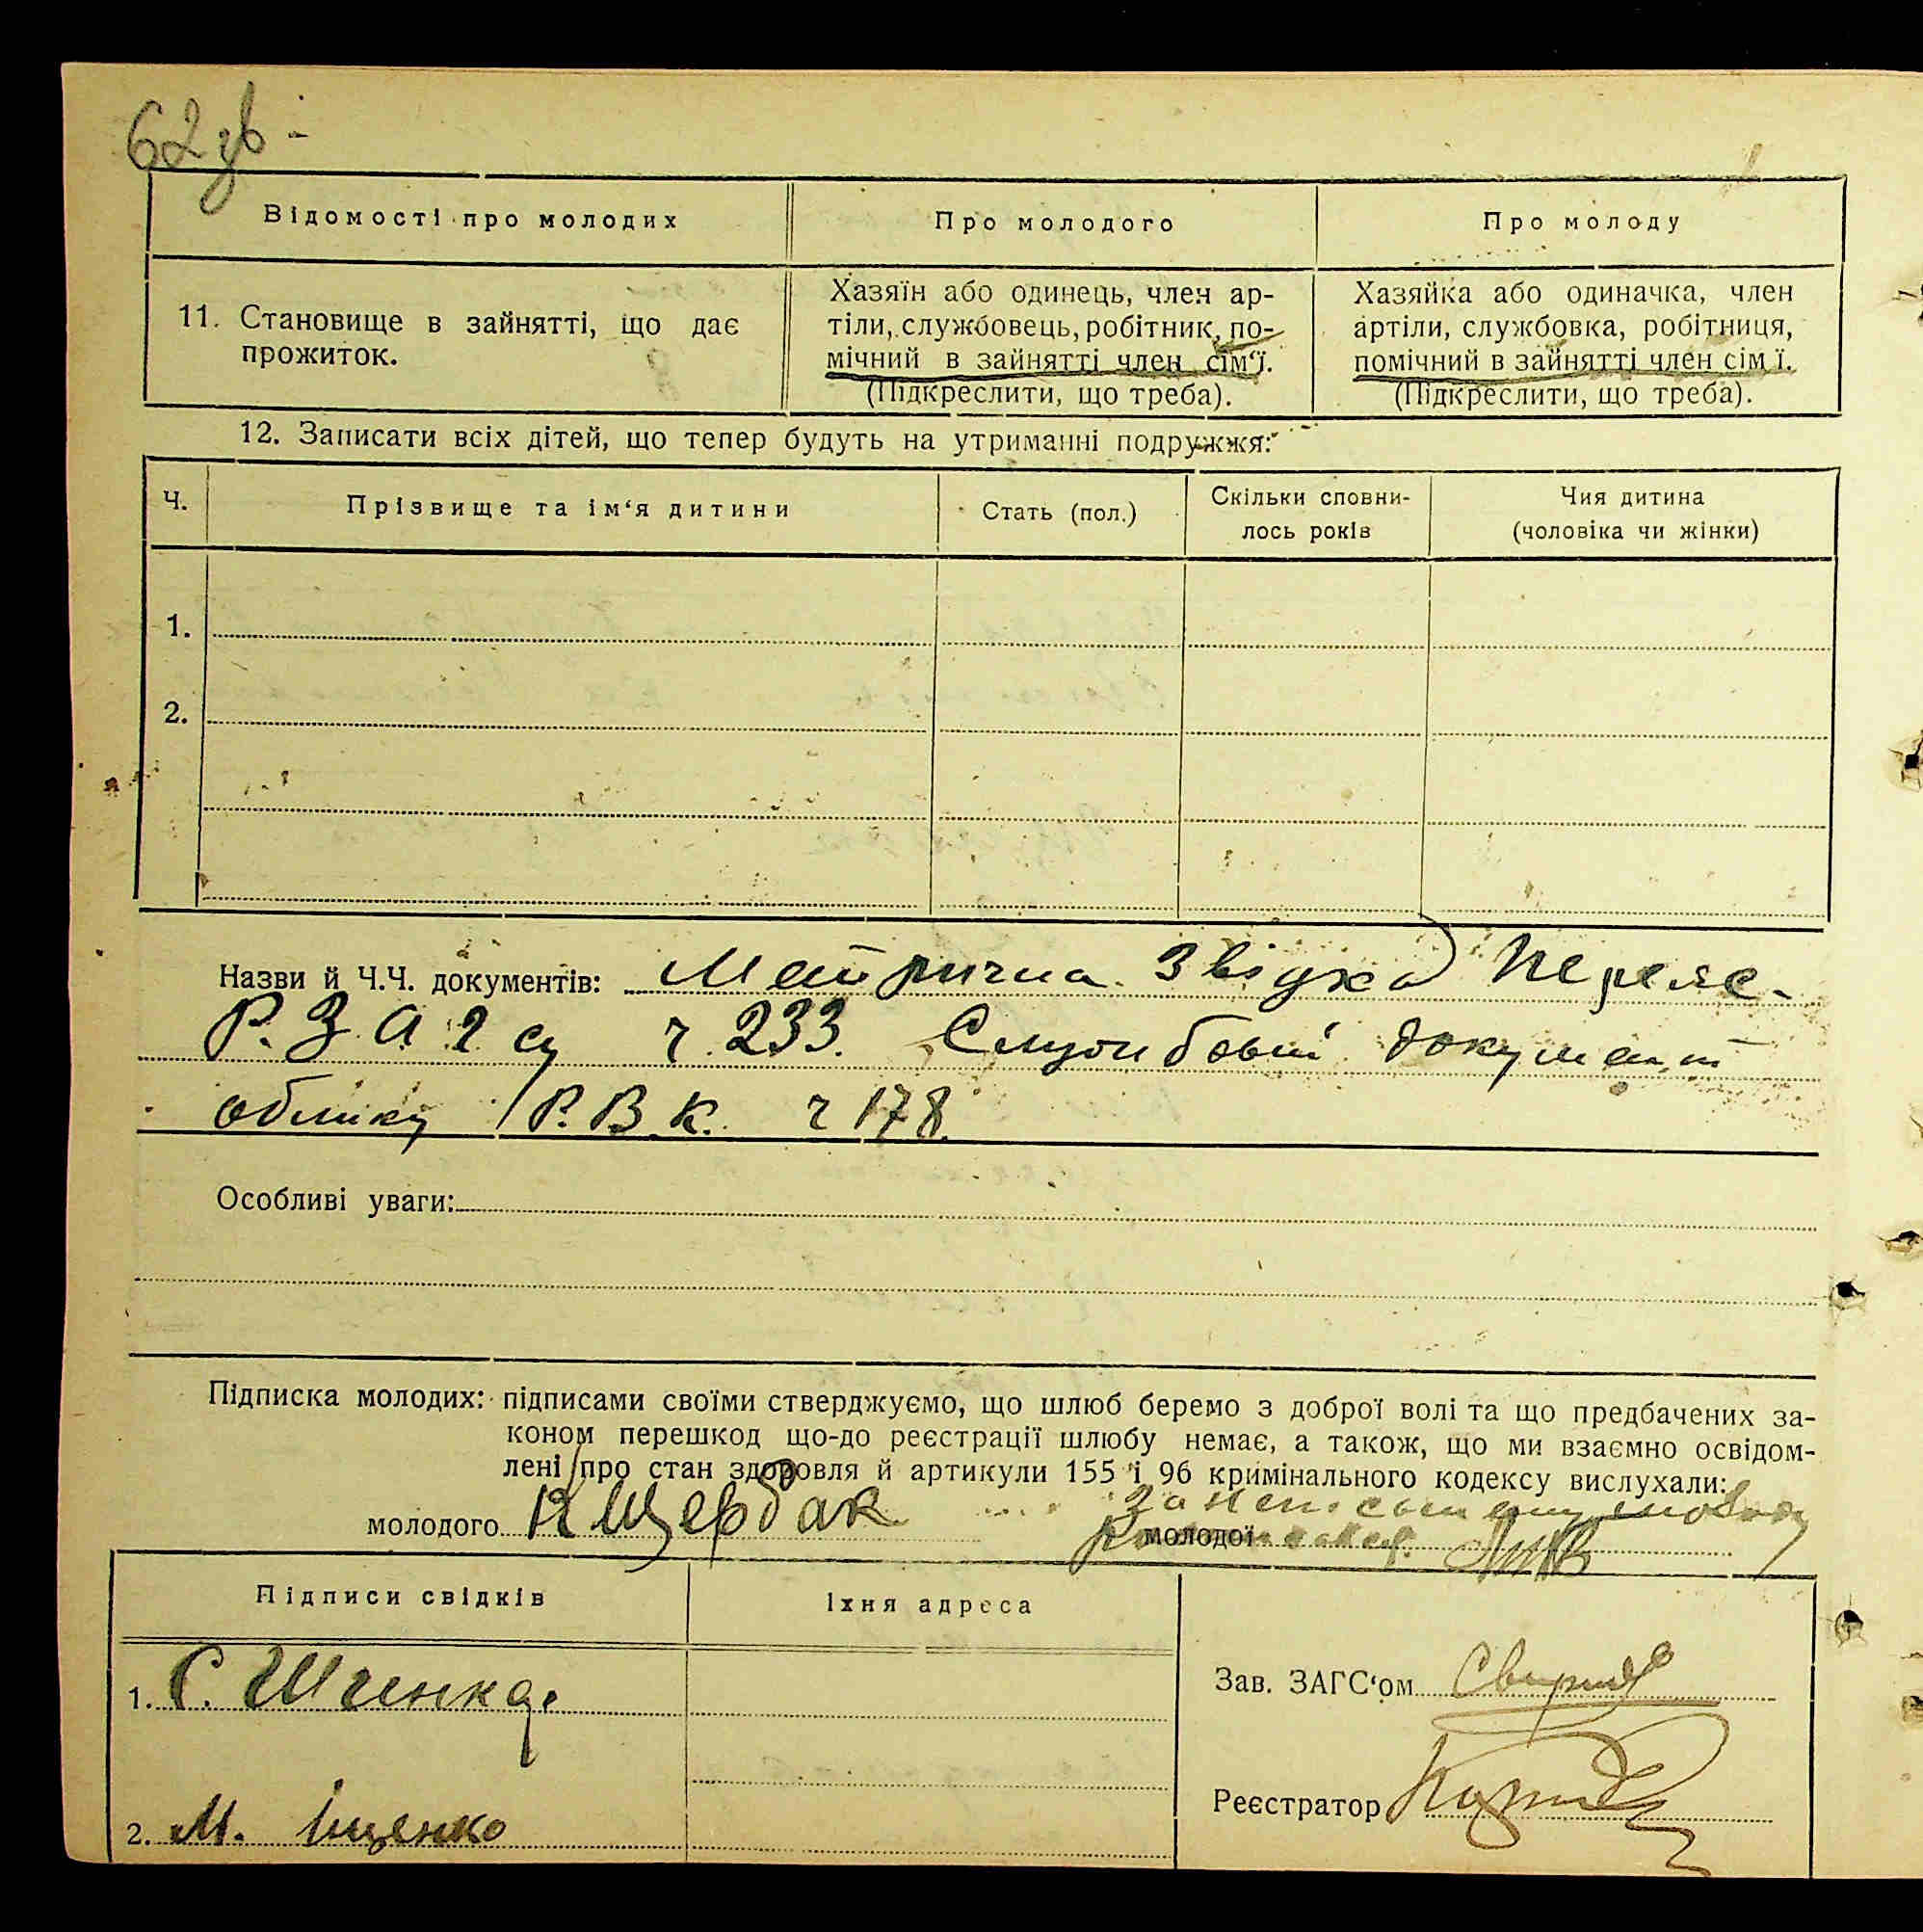 62 зв
Відомості про молодих
Про молодого
Про молоду
11. Становище в зайнятті, що дає
прожиток.
Хазяїн або одинець, член ар-
тіли, службовець, робітник, по-
мічний в зайнятті член сім‘ї.
(Підкреслити, що треба).
Хазяйка або одиначка, член
артіли, службовка, робітниця,
помічний в зайнятті член сім ї.
(Підкреслити, що треба).
12. Записати всіх дітей, що тепер будуть на утриманні подружжя:
Ч.
Прізвище та ім‘я дитини
Стать (пол.)
Скільки сповни-
лось років
Чия дитина
(чоловіка чи жінки)
1.
2.
Назви й Ч.Ч. документів: Метрична Звідка Переяс.
Р. З А г су ч. 233. Службовий документ
обліку Р. В. К. ч 178.
Особливі уваги:
Підписка молодих: підписами своїми стверджуємо, що шлюб беремо з доброї волі та що предбачених за-
коном перешкод що-до реєстрації шлюбу немає, а також, що ми взаємно освідом-
лені про стан здоровля й артикули 155 і 96 кримінального кодексу вислухали:
молодого К Щербак
За неписьменну молоду
молодої
Підписи свідків
Їхня адреса
1. С.
Зав. ЗАГС‘ом
Реєстратор
2. М. Іщенко